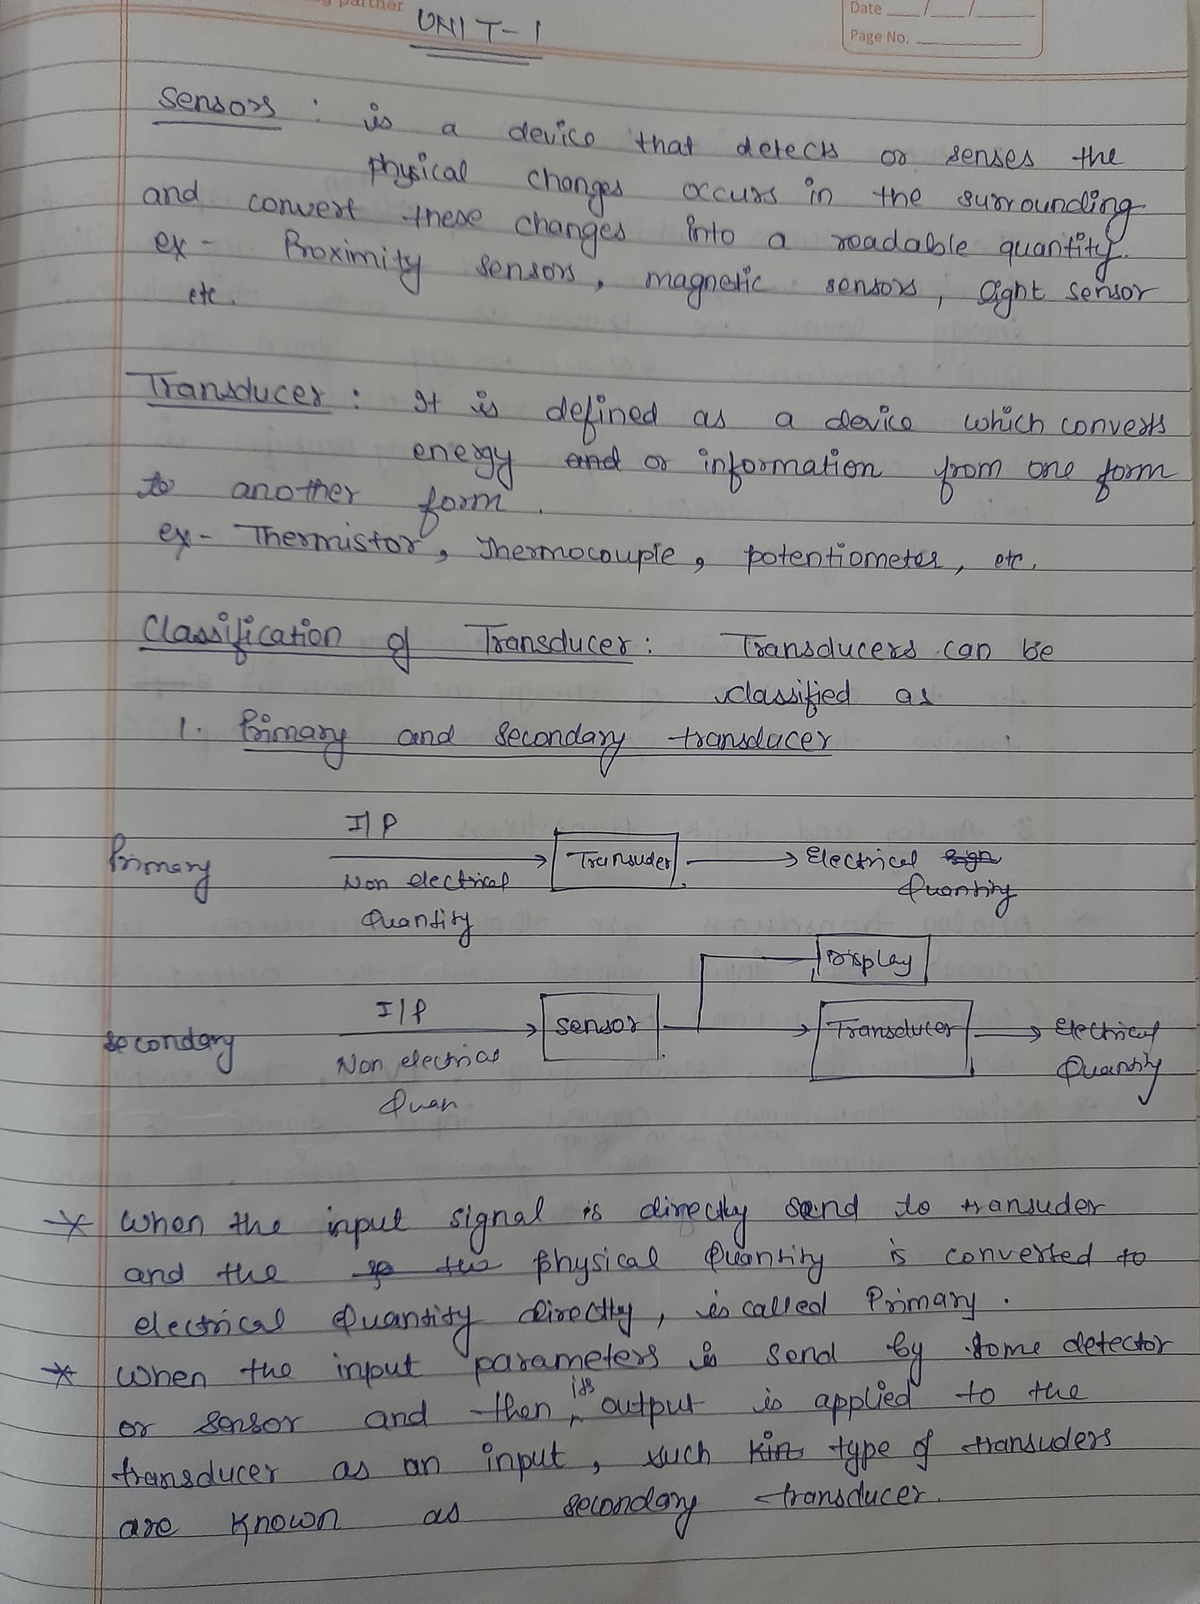 partner
UNIT-1
Date __/__/__
Page No.
Sensors : is a device that detects or senses the
physical changes occurs in the surrounding
and convert these changes into a readable quantity.
ex- Proximity sensors, magnetic sensors, light sensor
etc.
Transducer : It is defined as a device which converts
energy and or information from one form
to another form.
ex- Thermistor, Thermocouple, potentiometer, etc.
Classification of Transducer : Transducers can be
classified as
1. Primary and secondary transducer
I/P
Primary Transuder Electrical sign
Non electrical Quantity
Quantity
Display
I/P
secondary Sensor Transducer Electrical
Non electrical Quantity
Quan
* When the input signal is directly send to transuder
and the the physical Quantity is converted to
electrical Quantity directly, is called Primary.
* When the input parameters is send by some detector
or sensor and then its output is applied to the
transducer as an input, such kin type of transuders
are known as secondary transducer.